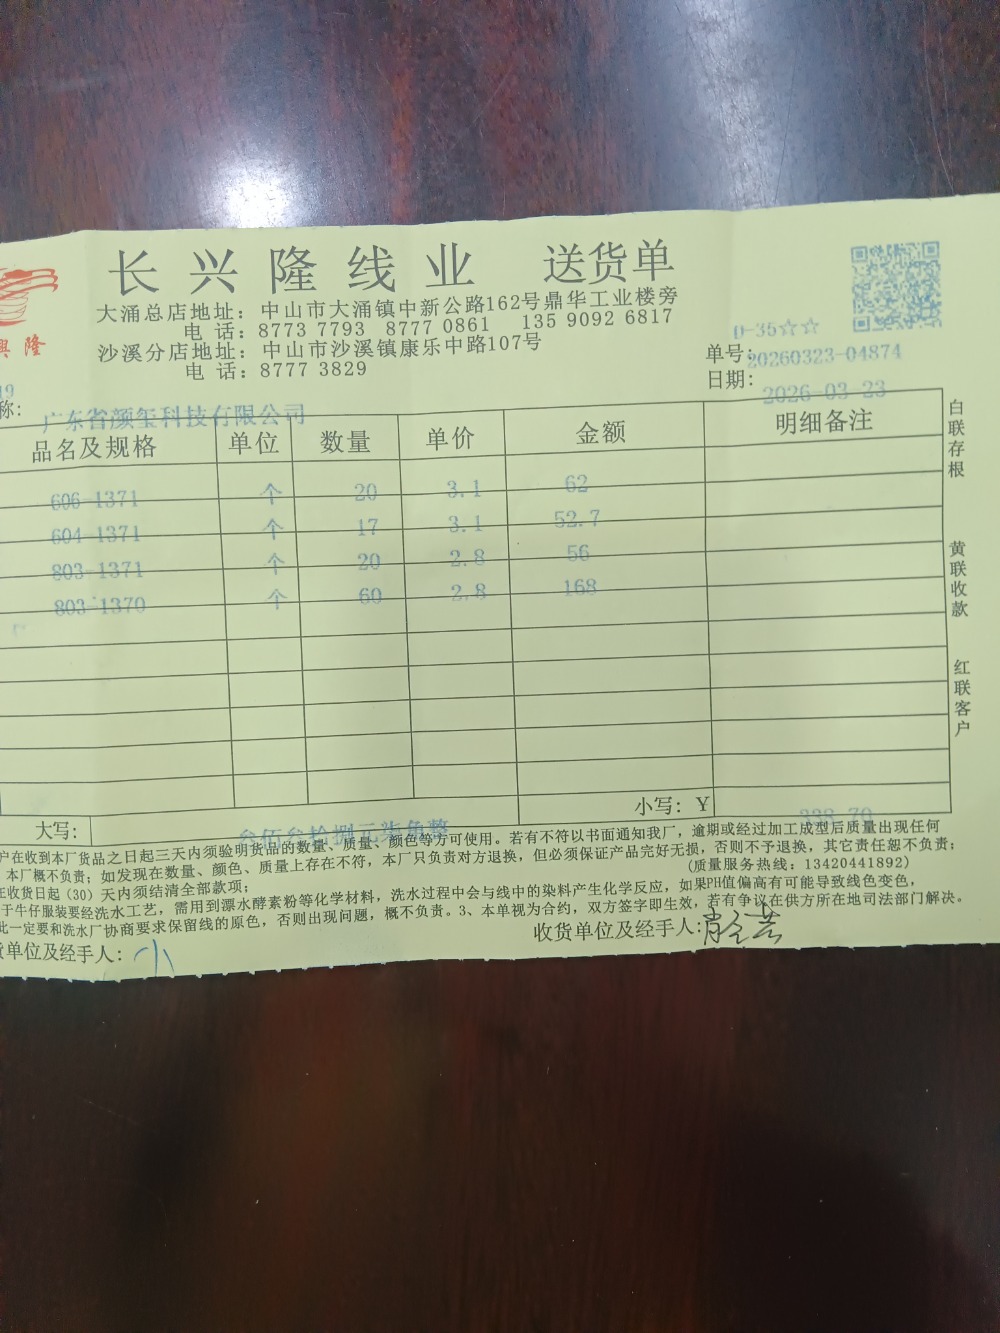 長 兴 隆 线 业 送货单
大涌总店地址：中山市大涌镇中新公路162号鼎华工业楼旁
电 话：8773 7793 8777 0861 135 9092 6817
沙溪分店地址：中山市沙溪镇康乐中路107号
电 话：8777 3829
興 隆
D-35☆☆
单号：20260323-04874
日期：2026-03-23
19
称：广东省颜玺科技有限公司
品名及规格 单位 数量 单价 金额 明细备注
606-1371 个 20 3.1 62
604-1371 个 17 3.1 52.7
803-1371 个 20 2.8 56
803-1370 个 60 2.8 168
小写：¥ 338.70
大写：叁佰叁拾捌元柒角整
户在收到本厂货品之日起三天内须验明货品的数量、质量、颜色等方可使用。若有不符以书面通知我厂，逾期或经过加工成型后质量出现任何
本厂概不负责；如发现在数量、颜色、质量上存在不符，本厂只负责对方退换，但必须保证产品完好无损，否则不予退换，其它责任恕不负责；
在收货日起（30）天内须结清全部款项； （质量服务热线：13420441892）
于牛仔服装要经洗水工艺，需用到漂水酵素粉等化学材料，洗水过程中会与线中的染料产生化学反应，如果PH值偏高有可能导致线色变色，
此一定要和洗水厂协商要求保留线的原色，否则出现问题，概不负责。3、本单视为合约，双方签字即生效，若有争议在供方所在地司法部门解决。
货单位及经手人： 收货单位及经手人：
白联存根
黄联收款
红联客户